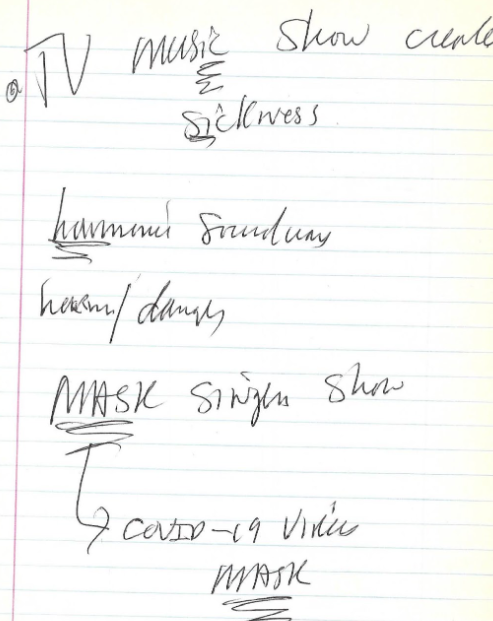 TV music show create
sickness
harmonic soundway
harm/danger
MASK singer show
COVID-19 virus
MASK